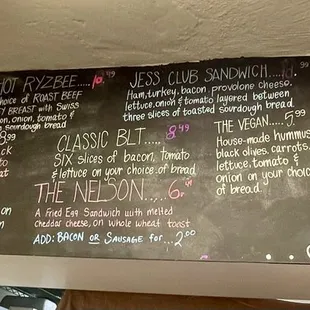 HOT RYZBEE.....10.49
choice of ROAST BEEF
BREAST with Swiss
onion, tomato &
sourdough bread
8.99
JESS CLUB SANDWICH....10.99
Ham, turkey, bacon, provolone cheese,
lettuce, onion & tomato layered between
three slices of toasted sourdough bread
CLASSIC BLT.....8.49
SIX slices of bacon, tomato
& lettuce on your choice of bread
THE VEGAN.....5.99
House-made hummus
black olives, carrots,
lettuce, tomato &
onion on your choice
of bread.
THE NELSON.....6.
A Fried Egg Sandwich with melted
cheddar cheese, on whole wheat toast
ADD: BACON OR SAUSAGE for...2.00
on